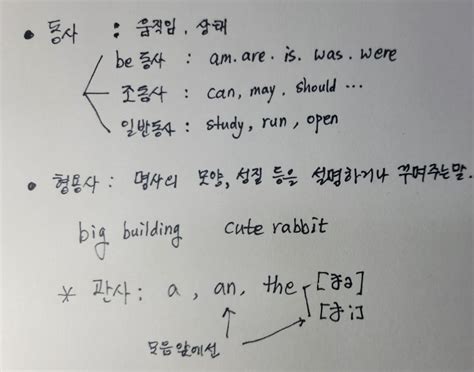 • 동사 : 움직임, 상태
be 동사 : am. are. is. was. were
조동사 : can, may, should ...
일반동사 : study, run, open
• 형용사 : 명사의 모양, 성질 등을 설명하거나 꾸며주는말.
big building cute rabbit
* 관사 : a, an, the [ðə]
[ði]
모음앞에선